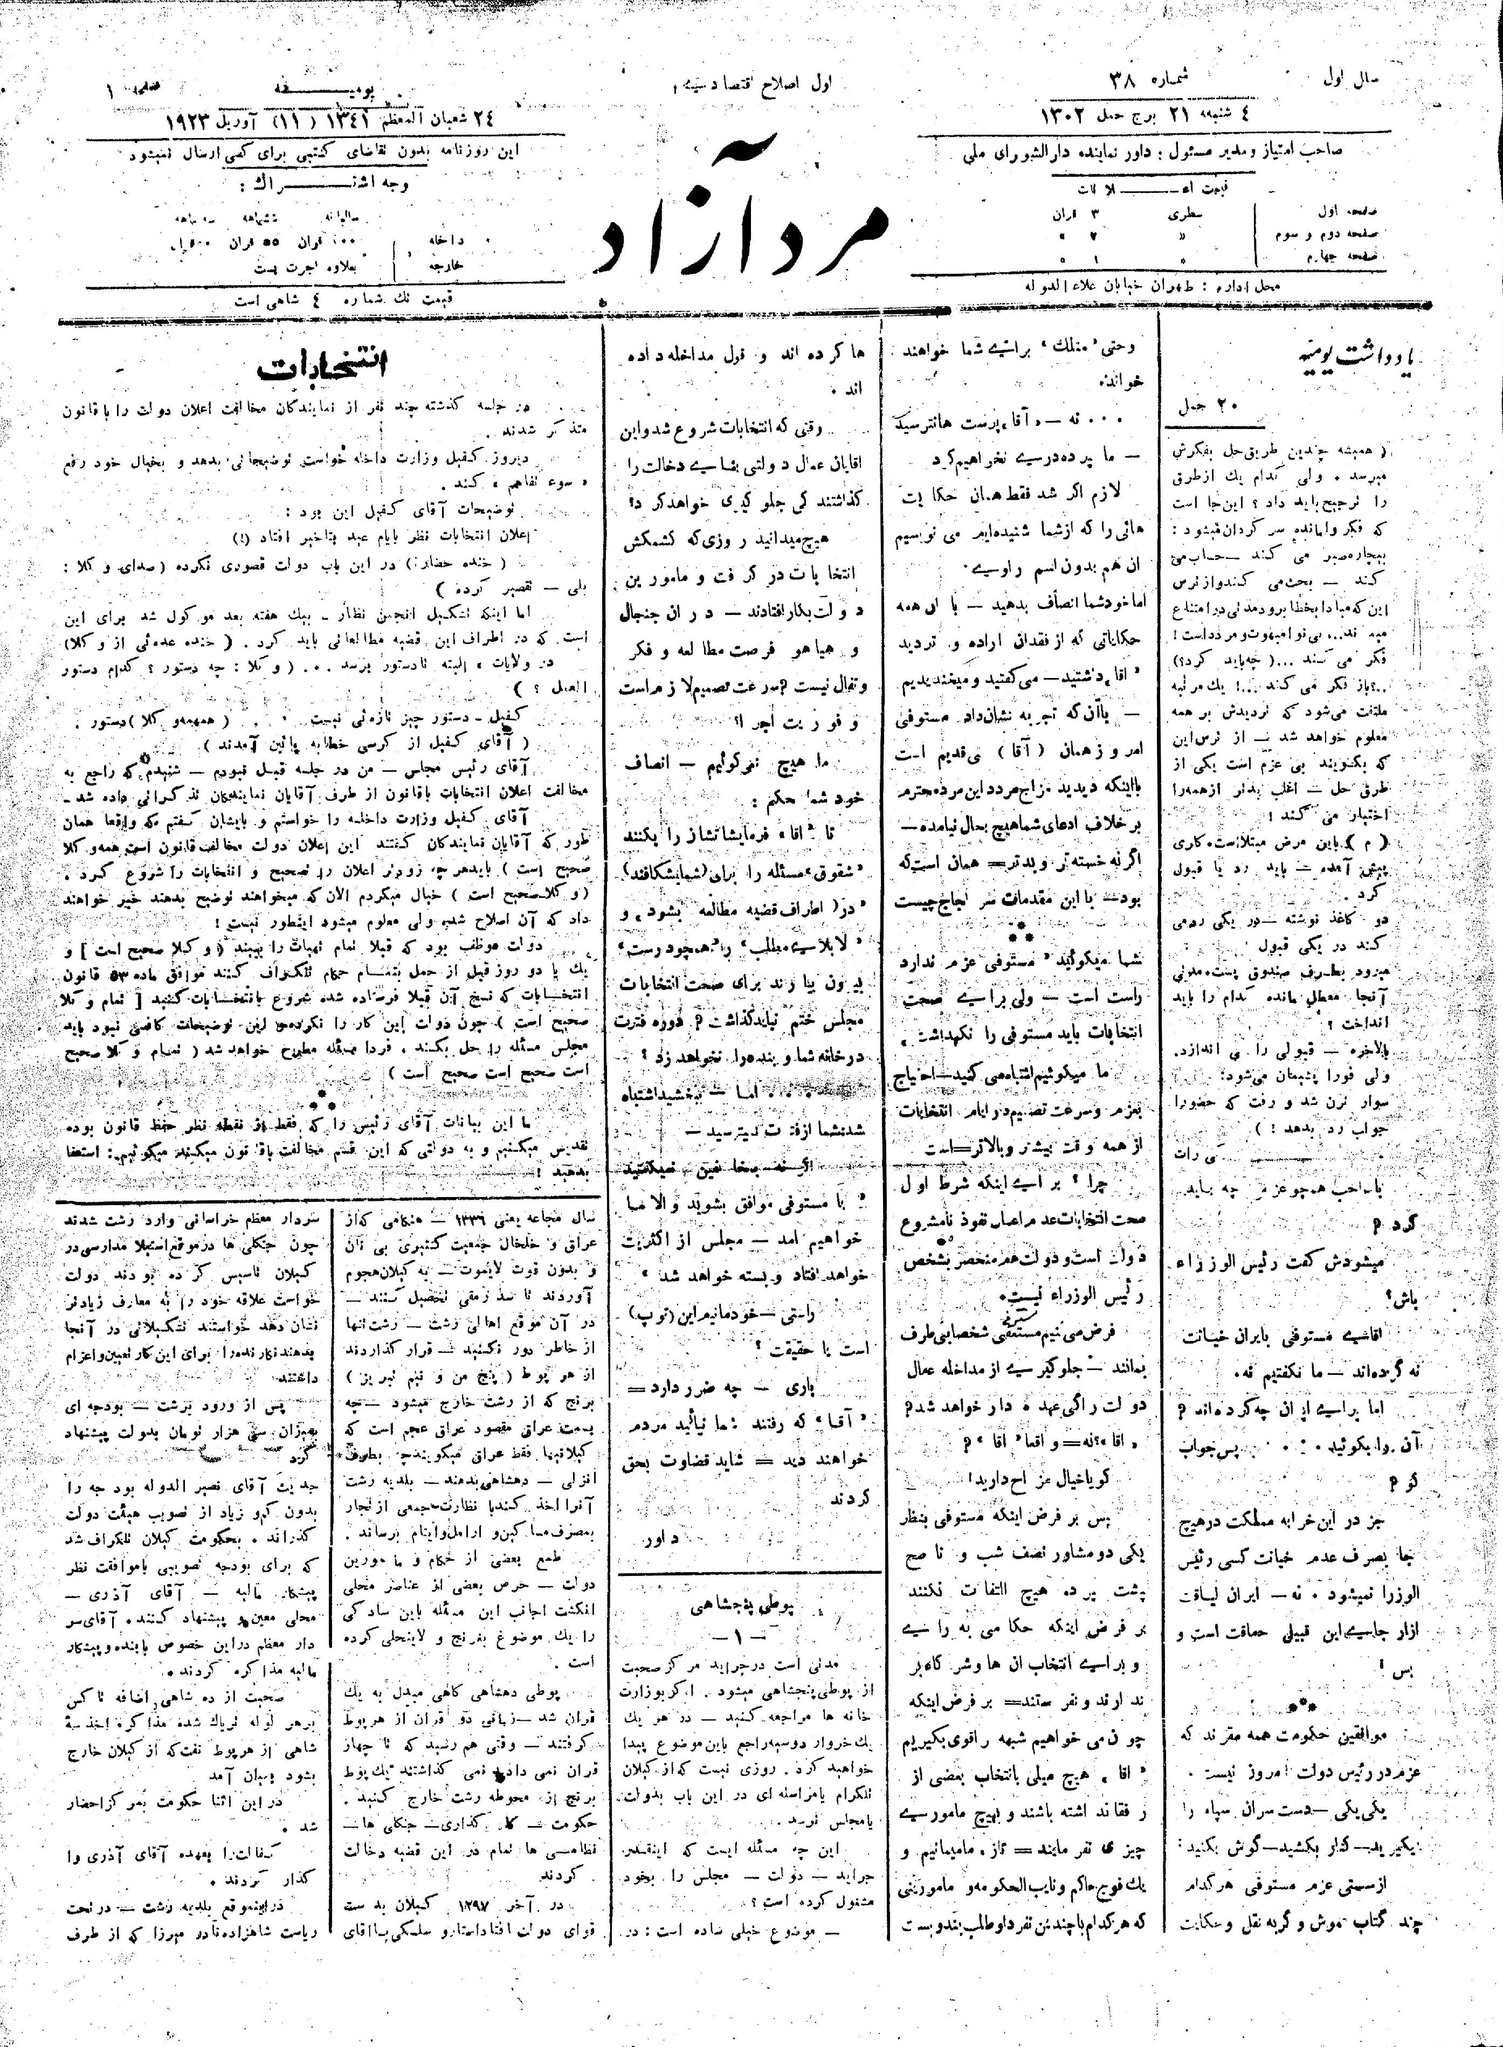 سال اول
شماره ۳۸
۴ شنبه ۲۱ برج حمل ۱۳۰۲
صاحب امتیاز و مدیر مسئول : داور نماینده دارالشورای ملی
قیمت اعلانات
صفحه اول سطری ۳ قران
صفحه دوم و سوم » ۲ »
صفحه چهارم » ۱ »
محل اداره : طهران خیابان علاء الدوله
اول اصلاح اقتصادی
مرد آزاد
یومیه
صفحه ۱
۲۴ شعبان المعظم ۱۳۴۱ ( ۱۱ ) آوریل ۱۹۲۳
این روزنامه بدون تقاضای کتبی برای کسی ارسال نمیشود
وجه اشتراک :
سالیانه ششماهه سه ماهه
داخله ۱۰۰ قران ۵۵ قران
خارجه بعلاوه اجرت پست
قیمت تک شماره ۴ شاهی است
یادداشت یومیه
۲۰ حمل
( همیشه چندین طریق حل بفکرش
میرسد . ولی کدام یك از طرق
را ترجیح باید داد ؟ این جا است
که فکر وامانده سر گردان میشود :
بیچاره صبر می کند – حساب می
کند – بحث می کند و از ترس
این که مبادا بخطا برود مدتی در امتناع
فکر می کند ...( چه باید کرد؟)
..؟ باز فکر می کند ...! یك مرتبه
ملتفت می شود که تردیدش بر همه
معلوم خواهد شد – از ترس این
که بگویند بی عزم است یکی از
طرق حل – اغلب بدتر از همه را
اختیار می کند !
( م ) باین مرض مبتلا است . کاری
پیش آمده – باید رد یا قبول
کرد .
دو کاغذ نوشته – در یکی رد می
کند در یکی قبول :
میرود بطرف صندوق پست . مدتی
آنجا معطل مانده کدام را باید
انداخت ؟
بالاخره – قبولی را می اندازد .
ولی فورا پشیمان می شود :
سوار ترن شد و رفت که حضورا
جواب رد بدهد ! )
باصاحب همچو عزمی چه باید
کرد ؟
میشودش گفت رئیس الوزراء
باش ؟
اقای مستوفی بایران خیانت
نه کرده اند – ما نگفتیم نه .
اما برای ایران چه کرده اند ؟
آن را بگوئید . . . . پس جواب
کو ؟
جز در این خرابه مملکت در هیچ
جا بصرف عدم خیانت کسی رئیس
الوزرا نمیشود . نه – ایران لیاقت
ازار جای این قبیلی حماقت است و
بس !
⁂
موافقین حکومت همه مقرند که
عزم در رئیس دولت امروز نیست .
یکی یکی – دست سران سپاه را
بگیرید – کنار بکشید – گوش بکنید :
از سستی عزم مستوفی هر کدام
چند کتاب موش و گربه نقل و حکایت
وحتی «متلك» برای شما خواهند
خواند .
. . . نه – «آقا» پرست ها نترسید
– ما پرده دری نخواهیم کرد
لازم اگر شد فقط همان حکایت
هائی را که از شما شنیده ایم می نویسیم
ان هم بدون اسم راوی .
اما خود شما انصاف بدهید – با ان همه
حکایاتی که از فقدان اراده و تردید
«اقا» داشتید – می گفتید و میخندیدیم
– باآن که تجربه نشان داد مستوفی
امروز همان ( آقا ) ی قدیم است
بااینکه دیدید مزاج مردد این مرد محترم
برخلاف ادعای شما هیچ بحال نیامده –
اگر نه خسته تر و بدتر – همان است که
بود – با این مقدمات سر لجاج چیست
⁂
شما میگوئید « مستوفی عزم ندارد
راست است – ولی برای صحت
انتخابات باید مستوفی را نگهداشت »
ما میگوئیم اشتباه می کنید – احتیاج
بعزم و سرعت تصمیم در ایام انتخابات
از همه وقت بیشتر و بالاتر است
چرا ؟ برای اینکه شرط اول
صحت انتخابات عدم اعمال نفوذ نامشروع
دولت است و دولت هم منحصر بشخص
رئیس الوزراء نیست .
فرض می کنیم مستوفی شخصا بی طرف
بمانند – جلوگیری از مداخله عمال
دولت را کی عهده دار خواهد شد ؟
«اقا»؟ نه – واقعا «اقا» ؟
گویا خیال مزاح دارید !
پس بر فرض اینکه مستوفی بنظر
یکی دو مشاور نصف شب و ناصح
پشت پرده هیچ التفات نکنند
بر فرض اینکه حکامی به رأی
و برای انتخاب ان ها و شرکاء بر
ندارند و نفرستند – بر فرض اینکه
چون می خواهیم شبهه را قوی بگیریم
«اقا» هیچ میلی بانتخاب بعضی از
رفقا نداشته باشند و بهیچ ماموری
چیزی نفرمایند – تازه ما میمانیم و
یك فوج حاکم و نایب الحکومه و مامورینی
که هر کدام با چند تن نفر داوطلب بند و بست
ها کرده اند و قول مداخله داده
اند .
وقتی که انتخابات شروع شد و این
اقایان عمال دولتی بنای دخالت را
گذاشتند کی جلوگیری خواهد کرد ؟
هیچ میدانید روزی که کشمکش
انتخابات در گرفت و مامورین
دولت بکار افتادند – در ان جنجال
و هیاهو فرصت مطالعه و فکر
و تفال نیست ؟ سرعت تصمیم لازم است
و فوریت اجرا ؟
ما هیچ نمی گوئیم – انصاف
خود شما حکم :
تا «اقا» فرمایشاتشان را بکنند
«شقوق» مسئله را برای (شما بشکافند)
«در( اطراف قضیه مطالعه بشود » و
«لابلای مطلب» را «همچو درست»
بیرون بیاورند برای صحت انتخابات
مجلس ختم نباید گذاشت ؟ دوره فترت
در خانه شما و بنده را نخواهد زد ؟
. . . . اما – ببخشید اشتباه
شد شما از فترت نمیترسید –
اگر نه بمخالفین نمیگفتید
« با مستوفی موافق بشوید والا ما
خواهیم امد – مجلس از اکثریت
خواهد افتاد و بسته خواهد شد »
راستی – خودمانیم این (توپ)
است یا حقیقت ؟
باری – چه ضرر دارد –
«آقا» که رفتند شما نیائید مردم
خواهند دید – شاید قضاوت بحق
کردند
داور
پوطی پنجشاهی
– ۱ –
مدتی است در جراید مرکز صحبت
از پوطی پنجشاهی میشود . اگر بوزارت
خانه ها مراجعه کنید – در هر یك
یك خروار دوسیه راجع باین موضوع پیدا
خواهید کرد . روزی نیست که از گیلان
تلگرام یا مراسله ای در این باب بدولت
یا مجلس نرسد .
این چه مسئله ایست که اینقدر
جراید – دولت – مجلس را بخود
مشغول کرده است ؟
– موضوع خیلی ساده است : در
انتخابات
در جلسه گذشته چند نفر از نمایندگان مخالفت اعلان دولت را با قانون
متذکر شدند .
دیروز کفیل وزارت داخله خواست توضیحاتی بدهد و بخیال خود رفع
« سوء تفاهم » کند .
توضیحات آقای کفیل این بود :
اعلان انتخابات نظر بایام عید بتاخیر افتاد (!)
( خنده حضار ) در این باب دولت قصوری نکرده ( صدای وکلا :
بلی – تقصیر کرده )
اما اینکه تشکیل انجمن نظار – بیك هفته بعد موکول شد برای این
است که در اطراف این قضیه مطالعاتی باید کرد . ( خنده عده ئی از وکلا)
در ولایات « البته تا دستور برسد ... ( وکلا : چه دستور ؟ کدام دستور
العمل ؟ )
کفیل – دستور چیز تازه ئی نیست . . ( همهمه وکلا ) دستور .
( آقای کفیل از کرسی خطابه پائین آمدند ) .
آقای رئیس مجلس – من در جلسه قبل نبودم – شنیدم که راجع به
مخالفت اعلان انتخابات با قانون از طرف آقایان نمایندگان تذکراتی داده شد –
آقای کفیل وزارت داخله را خواستم و بایشان گفتم که واقعا همان
طور که آقایان نمایندگان گفتند این اعلان دولت مخالف قانون است همه وکلا
صحیح است ) باید هر چه زودتر اعلان را تصحیح و انتخابات را شروع کرد .
( وکلا صحیح است ) خیال میکردم الان که میخواهند توضیح بدهند خبر خواهند
داد که آن اصلاح شده ولی معلوم میشود اینطور نیست !
دولت موظف بود که قبلا تمام تهیات را ببیند ( وکلا صحیح است ] و
یك یا دو روز قبل از حمل بتمام حکام تلگراف کنند موافق ماده ۵۳ قانون
انتخابات که نسخ آن قبلا فرستاده شده شروع بانتخابات کنید [ تمام وکلا
صحیح است ) چون دولت این کار را نکرده و این توضیحات کافی نبود باید
مجلس مسئله را حل بکند . فردا مسئله مطرح خواهد شد ( تمام وکلا صحیح
است صحیح است صحیح است )
⁂
ما این بیانات آقای رئیس را که فقط از نقطه نظر حفظ قانون بوده
تقدیس میکنیم و به دولتی که این قسم مخالفت با قانون میکند میگوئیم : استعفا
بدهید !
سال مجاعه یعنی ۱۳۳۶ – هنگامی که از
عراق و خلخال جمعیت کثیری بی نان
و بدون قوت لایموت – به گیلان هجوم
آوردند تا سد رمقی تحصیل کنند –
در آن موقع اهالی رشت – رشت تنها
از خاطر دور نکنید – قرار گذاردند
از هر پوط ( پنج من و نیم تبریز )
برنج که از رشت خارج میشود – چه
بسمت عراق مقصود عراق عجم است که
گیلانیها فقط عراق میگویند چه بطرف
انزلی – دهشاهی بدهند – بلدیه رشت
آنرا اخذ کند با نظارت جمعی از تجار
بمصرف مساکین و ارامل و ایتام برساند .
طمع بعضی از حکام و مامورین
دولت – حرص بعضی از عناصر محلی
انگشت اجانب این مسئله باین سادگی
را یك موضوع بغرنج و لاینحلی کرده
است .
پوطی دهشاهی گاهی مبدل به یك
قران شد – زمانی دو قران از هر پوط
گرفتند – وقتی هم رسید که تا چهار
قران نمی دادند نمی گذاشتند یك پوط
برنج از محوطه رشت خارج کنید .
حکومت – کار گذاری – جنگلی ها –
نظامی ها تمام در این قضیه دخالت
کردند
در آخر ۱۲۹۷ گیلان بدست
قوای دولت افتاد استاروسلسکی با آقای
سردار معظم خراسانی وارد رشت شدند
چون جنگلی ها در موقع استیلا مدارسی در
گیلان تاسیس کرده بودند دولت
خواست علاقه خود را به معارف زیادتر
نشان دهد خواستند تشکیلاتی در آنجا
بدهند نگارنده را برای این کار تعیین و اعزام
داشتند
پس از ورود برشت – بودجه ای
بمیزان سی هزار تومان بدولت پیشنهاد
کرد
جدیت آقای نصیر الدوله بودجه را
بدون کم و زیاد از تصویب هیئت دولت
گذراند . بحکومت گیلان تلگراف شد
که برای بودجه تصویبی با موافقت نظر
پیشکار مالیه – آقای آذری –
محلی معین و پیشنهاد کنند . آقای سر
دار معظم در این خصوص با بنده و پیشکار
مالیه مذاکره کردند .
صحبت از ده شاهی اضافه تاکس
برهر لوله تریاك شده مذاکره اخذ سه
شاهی از هر پوط نفت که از گیلان خارج
بشود بمیان آمد
در این اثنا حکومت بمرکز احضار
شد .
کفالت را بعهده آقای آذری وا
گذار کردند .
در اینموقع بلدیه رشت – در تحت
ریاست شاهزاده نادر میرزا که از طرف